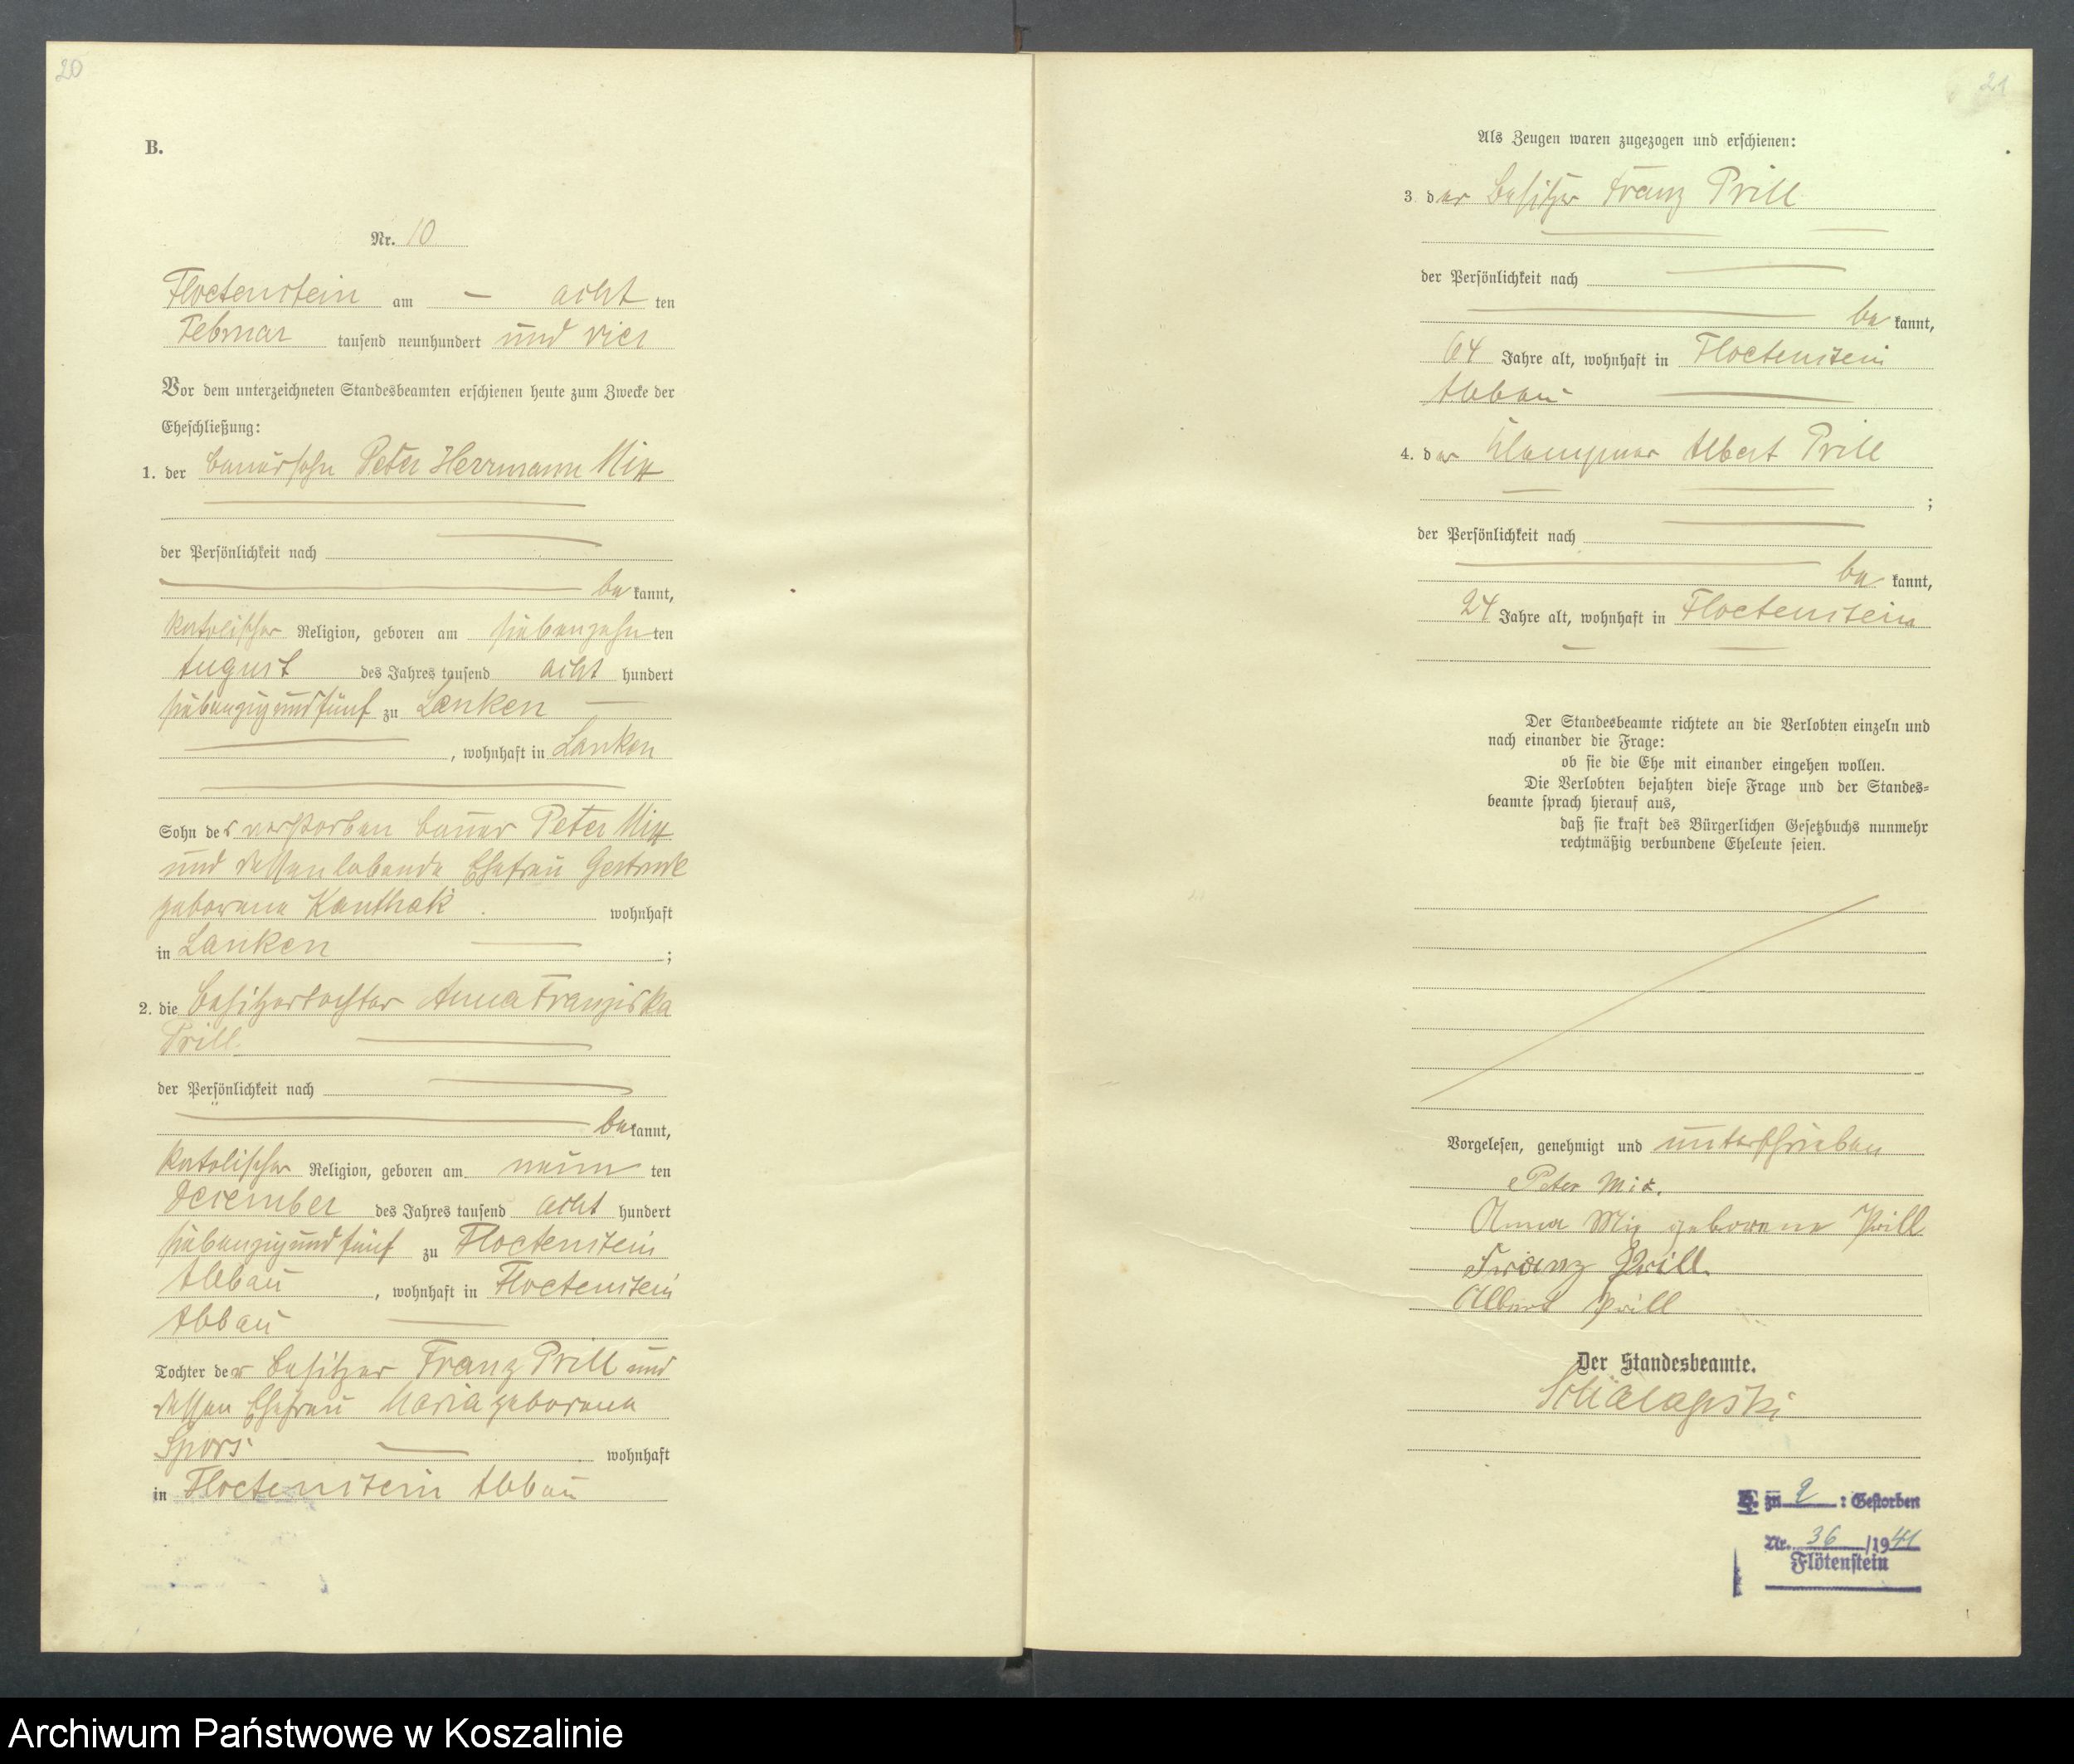 20
B.
Nr. 10
Floetenstein am — acht ten
Februar tausend neunhundert und vier
Vor dem unterzeichneten Standesbeamten erschienen heute zum Zwecke der
Eheschließung:
1. der Bauersohn Peter Herrmann Mix
der Persönlichkeit nach
be kannt,
katolischer Religion, geboren am siebenzehn ten
August des Jahres tausend acht hundert
siebenzig und fünf zu Lanken
, wohnhaft in Lanken
Sohn des verstorben Bauer Peter Mix
und dessen lebende Ehefrau Gertrude
geborene Kanthak wohnhaft
in Lanken ;
2. die Besitzertochter Anna Franziska
Prill
der Persönlichkeit nach
be kannt,
katolischer Religion, geboren am neun ten
December des Jahres tausend acht hundert
siebenzig und fünf zu Floetenstein
Abbau , wohnhaft in Floetenstein
Abbau
Tochter der Besitzer Franz Prill und
dessen Ehefrau Maria geborene
Spors wohnhaft
in Floetenstein Abbau
21
Als Zeugen waren zugezogen und erschienen:
3. der Besitzer Franz Prill
der Persönlichkeit nach
be kannt,
64 Jahre alt, wohnhaft in Floetenstein
Abbau
4. der Klempner Albert Prill
;
der Persönlichkeit nach
be kannt,
24 Jahre alt, wohnhaft in Floetenstein
Der Standesbeamte richtete an die Verlobten einzeln und
nach einander die Frage:
ob sie die Ehe mit einander eingehen wollen.
Die Verlobten bejahten diese Frage und der Standes-
beamte sprach hierauf aus,
daß sie kraft des Bürgerlichen Gesetzbuchs nunmehr
rechtmäßig verbundene Eheleute seien.
Vorgelesen, genehmigt und unterschrieben
Peter Mix.
Anna Mix geborene Prill
Franz Prill.
Albert Prill
Der Standesbeamte.
zu 2 : Gestorben
Nr. 36 /1941
Flötenstein
Archiwum Państwowe w Koszalinie